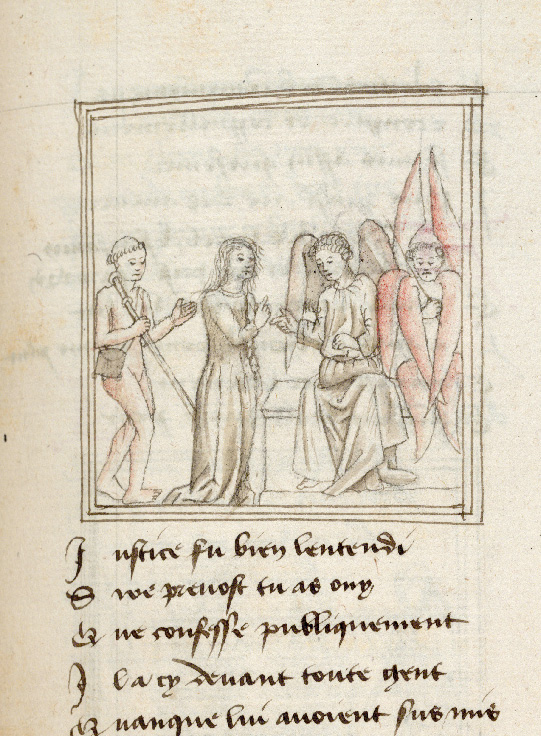 Justice fu bien lentendi
Sire prevost tu as ouy
Que confesse publiquement
Il a cy devant toute gent
Quanque lui avoient sus mis